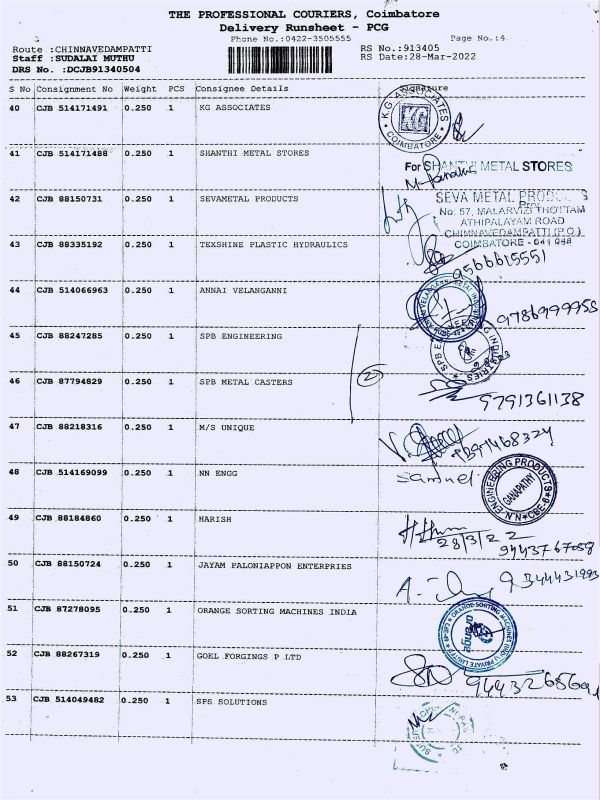 THE PROFESSIONAL COURIERS, Coimbatore
Delivery Runsheet - PCG
Phone No.:0422-3505555 Page No.:4
Route :CHINNAVEDAMPATTI RS No.:913405
Staff :SUDALAI MUTHU RS Date:28-Mar-2022
DRS No. :DCJB91340504
S No Consignment No Weight PCS Consignee Details Signature
40 CJB 514171491 0.250 1 KG ASSOCIATES
K.G. ASSOCIATES
KG
COIMBATORE
41 CJB 514171488 0.250 1 SHANTHI METAL STORES
For SHANTHI METAL STORES
42 CJB 88150731 0.250 1 SEVAMETAL PRODUCTS
SEVA METAL PRODUCTS
No: 57, MALARVIZI THOTTAM
ATHIPALAYAM ROAD
CHINNAVEDAMPATTI (P.O.)
COIMBATORE - 641 048
43 CJB 88335192 0.250 1 TEXSHINE PLASTIC HYDRAULICS
9566615551
44 CJB 514066963 0.250 1 ANNAI VELANGANNI
9786999955
45 CJB 88247285 0.250 1 SPB ENGINEERING
2
46 CJB 87794829 0.250 1 SPB METAL CASTERS
9791361138
47 CJB 88218316 0.250 1 M/S UNIQUE
48 CJB 514169099 0.250 1 NN ENGG
Samuel
N.N ENGINEERING PRODUCTS
GANAPATHY
CBE-6
49 CJB 88184860 0.250 1 HARISH
28/3/22
9443767058
50 CJB 88150724 0.250 1 JAYAM PALONIAPPON ENTERPRIES
9344431993
51 CJB 87278095 0.250 1 ORANGE SORTING MACHINES INDIA
ORANGE SORTING MACHINES (INDIA) PRIVATE LIMITED
orange
52 CJB 88267319 0.250 1 GOEL FORGINGS P LTD
53 CJB 514049482 0.250 1 SPS SOLUTIONS